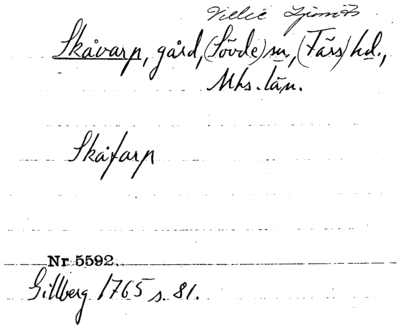 Skåvarp, gård, (Sövde) sn, (Färs) hd.,
Mhs. län.
Skåfarp
Nr 5592.
Gillberg 1765 s. 81.